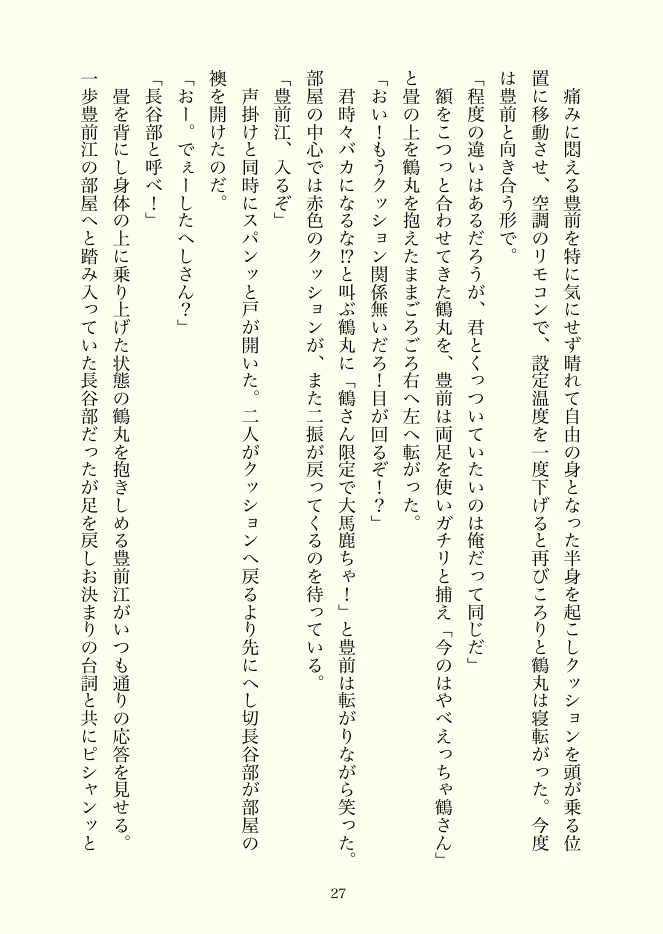 痛みに悶える豊前を特に気にせず晴れて自由の身となった半身を起こしクッションを頭が乗る位
置に移動させ、空調のリモコンで、設定温度を一度下げると再びころりと鶴丸は寝転がった。今度
は豊前と向き合う形で。
「程度の違いはあるだろうが、君とくっついていたいのは俺だって同じだ」
　額をこつっと合わせてきた鶴丸を、豊前は両足を使いガチリと捕え「今のはやべえっちゃ鶴さん」
と畳の上を鶴丸を抱えたままごろごろ右へ左へ転がった。
「おい！もうクッション関係無いだろ！目が回るぞ！？」
　君時々バカになるな⁉と叫ぶ鶴丸に「鶴さん限定で大馬鹿ちゃ！」と豊前は転がりながら笑った。
部屋の中心では赤色のクッションが、また二振が戻ってくるのを待っている。
「豊前江、入るぞ」
　声掛けと同時にスパンッと戸が開いた。二人がクッションへ戻るより先にへし切長谷部が部屋の
襖を開けたのだ。
「おー。でぇーしたへしさん？」
「長谷部と呼べ！」
　畳を背にし身体の上に乗り上げた状態の鶴丸を抱きしめる豊前江がいつも通りの応答を見せる。
一歩豊前江の部屋へと踏み入っていた長谷部だったが足を戻しお決まりの台詞と共にピシャンッと
27